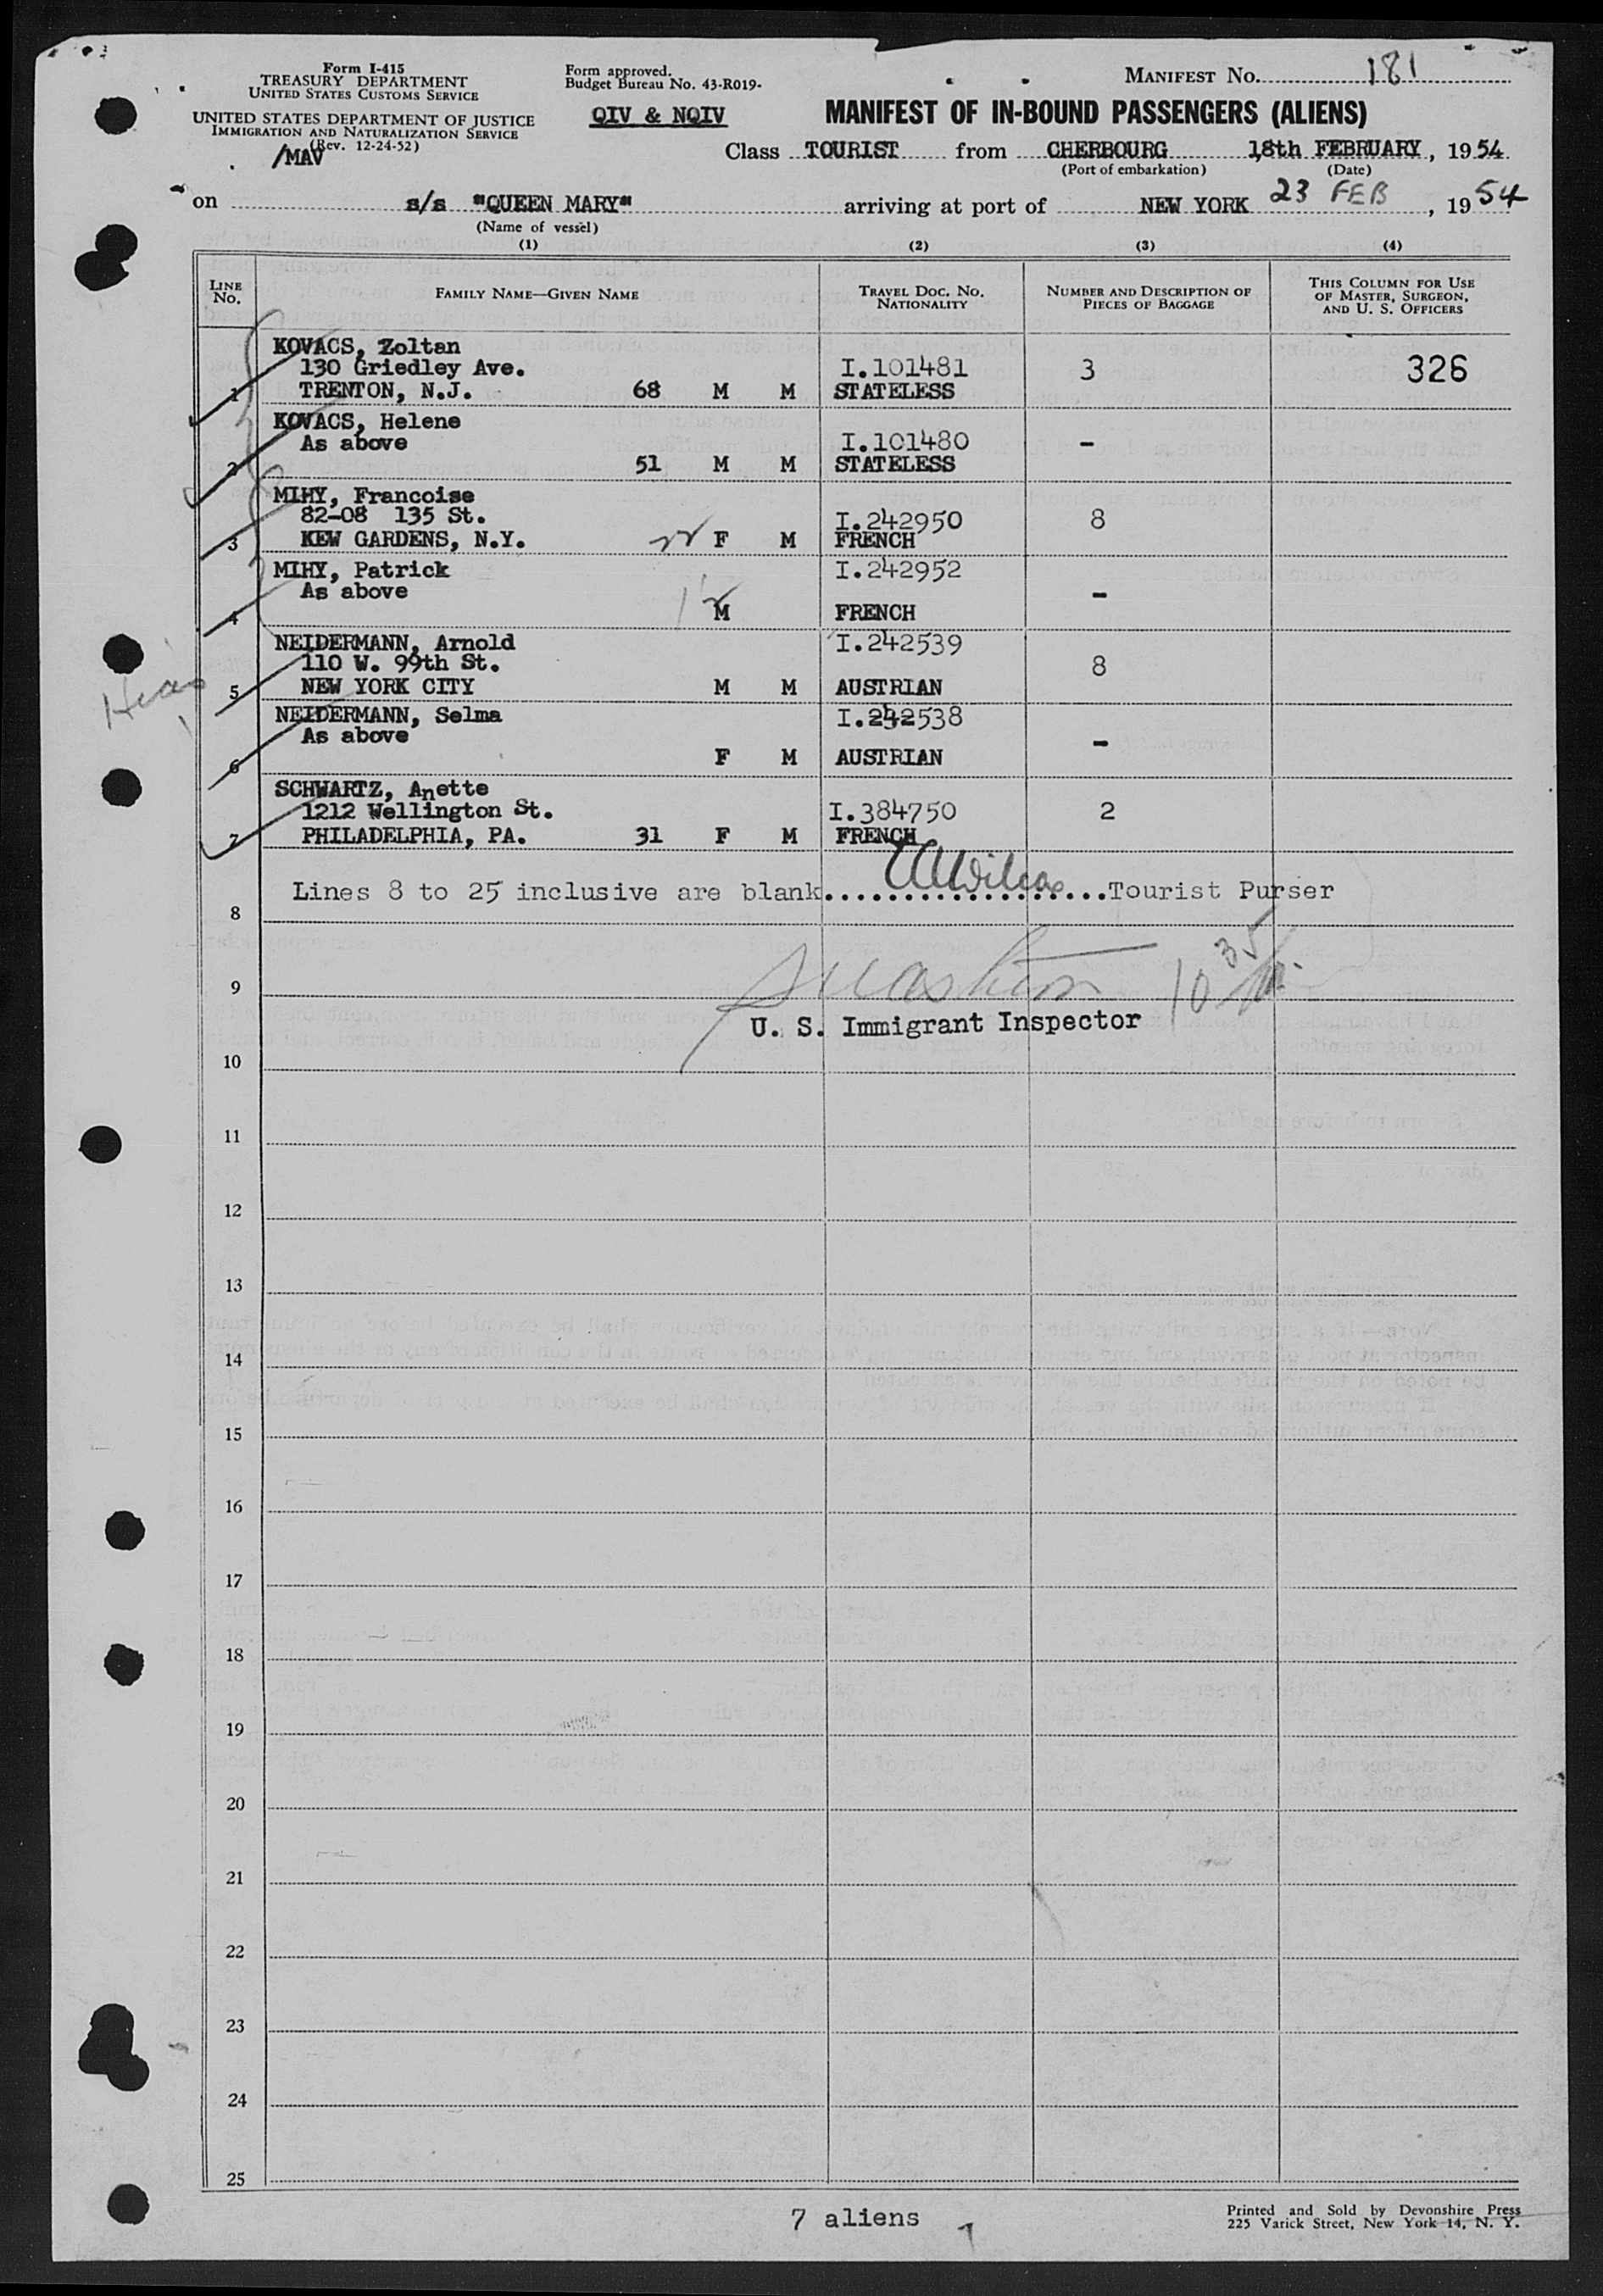 Form I-415
TREASURY DEPARTMENT
UNITED STATES CUSTOMS SERVICE
UNITED STATES DEPARTMENT OF JUSTICE
IMMIGRATION AND NATURALIZATION SERVICE
(Rev. 12-24-52)
/MAV
Form approved.
Budget Bureau No. 43-R019-
QIV & NQIV
MANIFEST NO. 181
MANIFEST OF IN-BOUND PASSENGERS (ALIENS)
Class TOURIST from CHERBOURG 18th FEBRUARY, 1954
(Port of embarkation) (Date)
on s/s "QUEEN MARY" arriving at port of NEW YORK 23 FEB, 1954
(Name of vessel)
(1) (2) (3) (4)
LINE NO. FAMILY NAME—GIVEN NAME TRAVEL DOC. NO. NATIONALITY NUMBER AND DESCRIPTION OF PIECES OF BAGGAGE THIS COLUMN FOR USE OF MASTER, SURGEON, AND U. S. OFFICERS
KOVACS, Zoltan
130 Griedley Ave. I.101481 3 326
1 TRENTON, N.J. 68 M M STATELESS
KOVACS, Helene
As above I.101480 -
2 51 M M STATELESS
MIHY, Francoise
82-08 135 St. I.242950 8
3 KEW GARDENS, N.Y. 22 F M FRENCH
MIHY, Patrick I.242952
As above -
4 M FRENCH
NEIDERMANN, Arnold I.242539
110 W. 99th St. 8
5 NEW YORK CITY M M AUSTRIAN
Hias
NEIDERMANN, Selma I.242538
As above -
6 F M AUSTRIAN
SCHWARTZ, Anette
1212 Wellington St. I.384750 2
7 PHILADELPHIA, PA. 31 F M FRENCH
Lines 8 to 25 inclusive are blank.... Wilcox ...Tourist Purser
8
9
10 35
U. S. Immigrant Inspector
10
11
12
13
14
15
16
17
18
19
20
21
22
23
24
25
7 aliens
Printed and Sold by Devonshire Press
225 Varick Street, New York 14, N. Y.